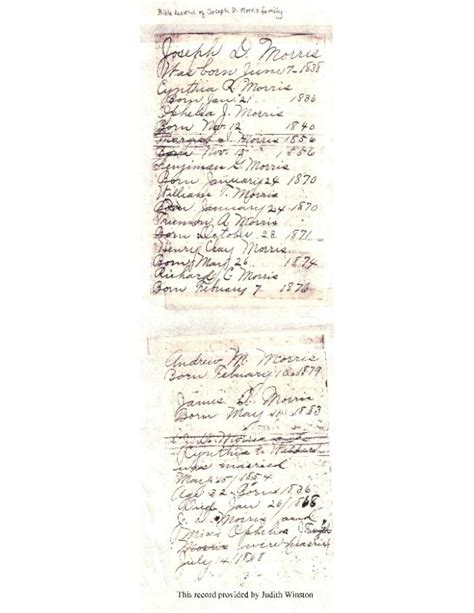 Bible Record of Joseph D. Morris family
Joseph D. Morris
Was born June 7 - 1838
Cynthia Morris
Born Jan. 21 1836
Ophelia J. Morris
Born Nov. 12 1840
Morris 1856
Born Nov. 15 1856
Morris
Born January 24 1870
William T. Morris
Born January 24 1870
Truemon A. Morris
Born October 28 1871
Henry Clay Morris
Born May 26 1874
Richard C Morris
Born Febuary 7 1876
Andrew M. Morris
Born Febuary 1879
James D. Morris
Born May 1883
Morris
Cynthia
was married
May 25/1854
Age 32 Born 1836
Died Jan 26/1868
J. D. Morris and
Miss Ophelia J.
Morris were married
July 4 1868
This record provided by Judith Winston